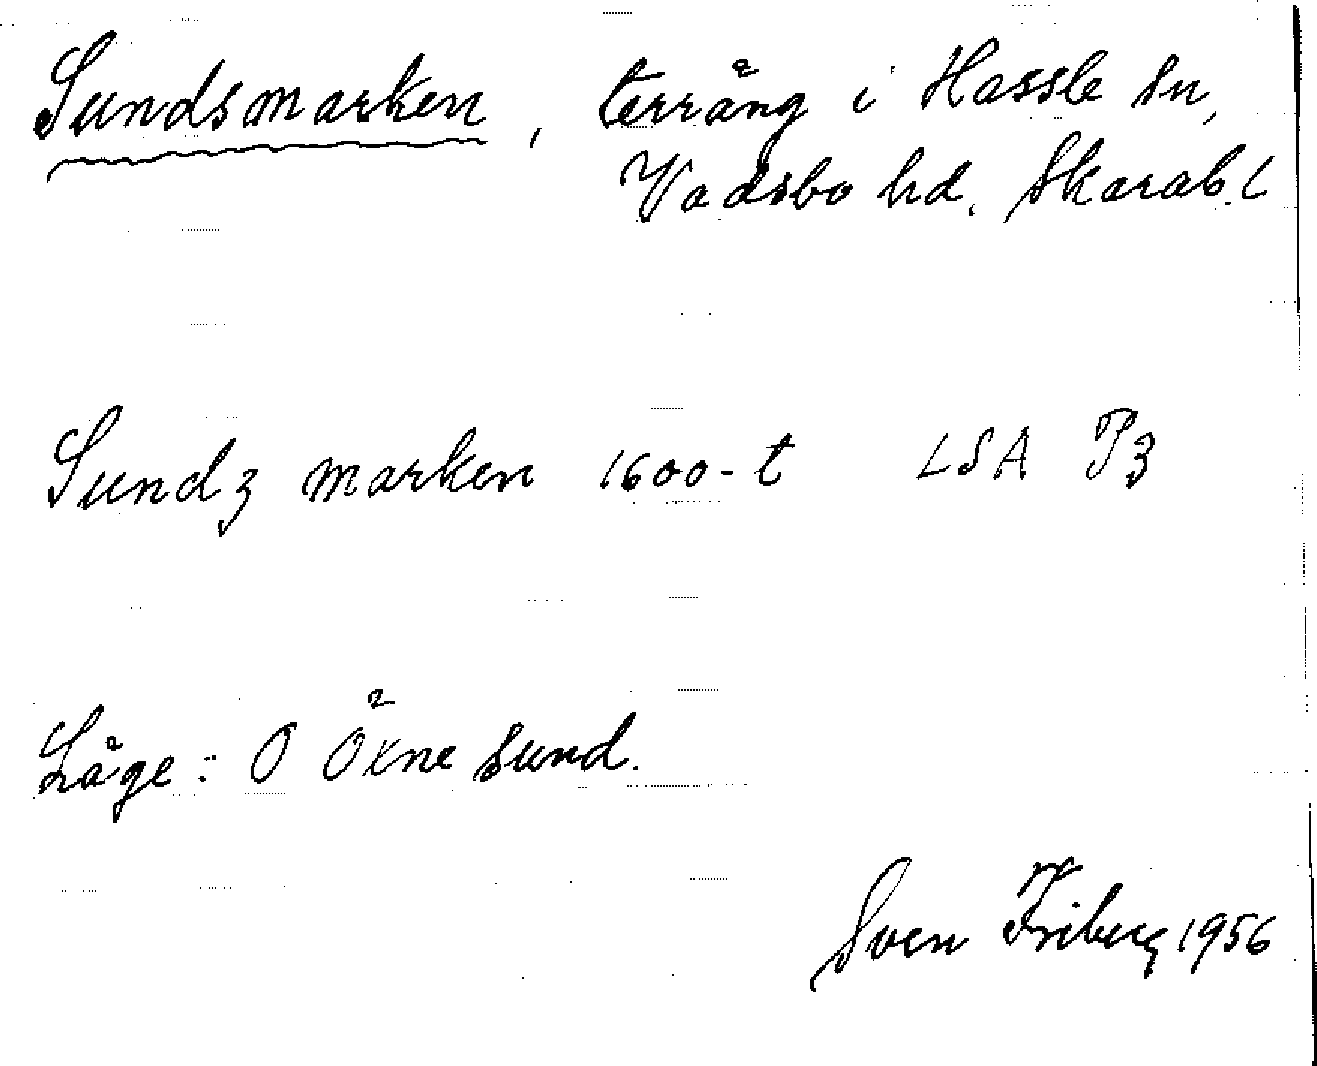 Sundsmarken, terräng i Hassle sn,
Vadsbo hd. Skarab. l
Sundz marken 1600-t LSA P3
Läge: O Ökne sund.
Sven Friberg 1956